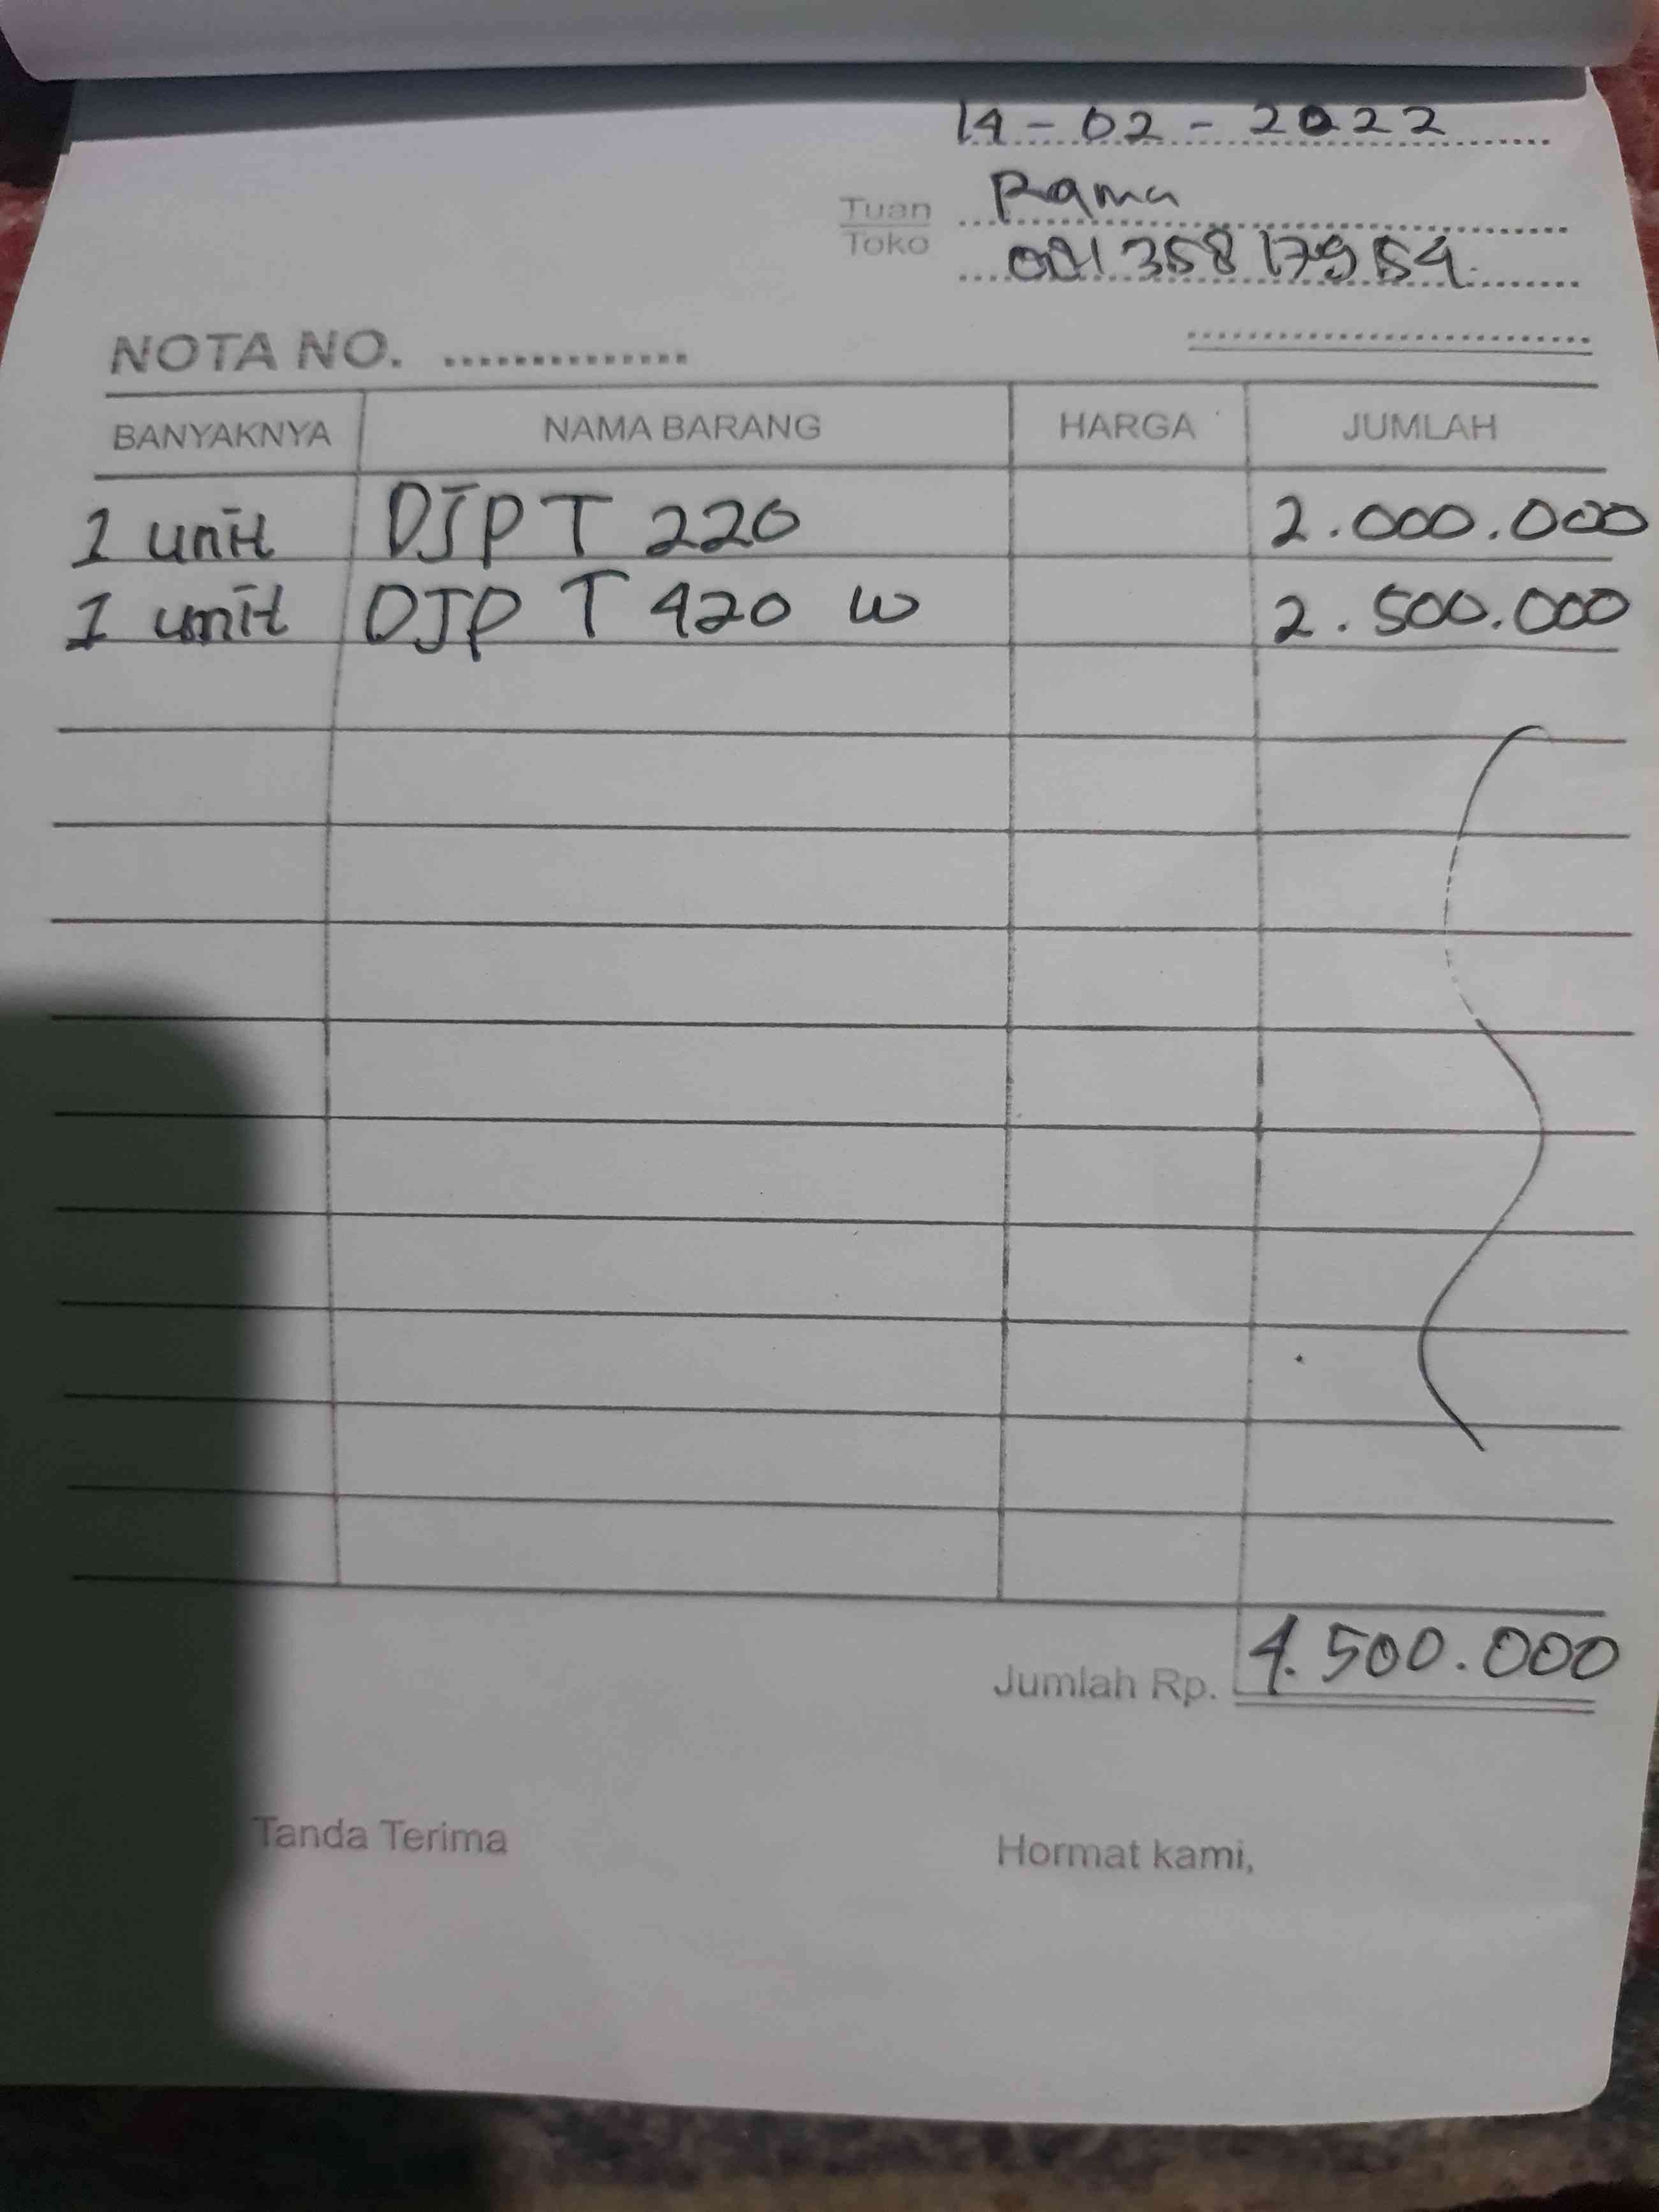 14-02-2022
Tuan Rama
Toko 08135817954
NOTA NO. ..............
BANYAKNYA NAMA BARANG HARGA JUMLAH
1 unit DJP T 220 2.000.000
1 unit DJP T 420 W 2.500.000
Jumlah Rp. 4.500.000
Tanda Terima Hormat kami,